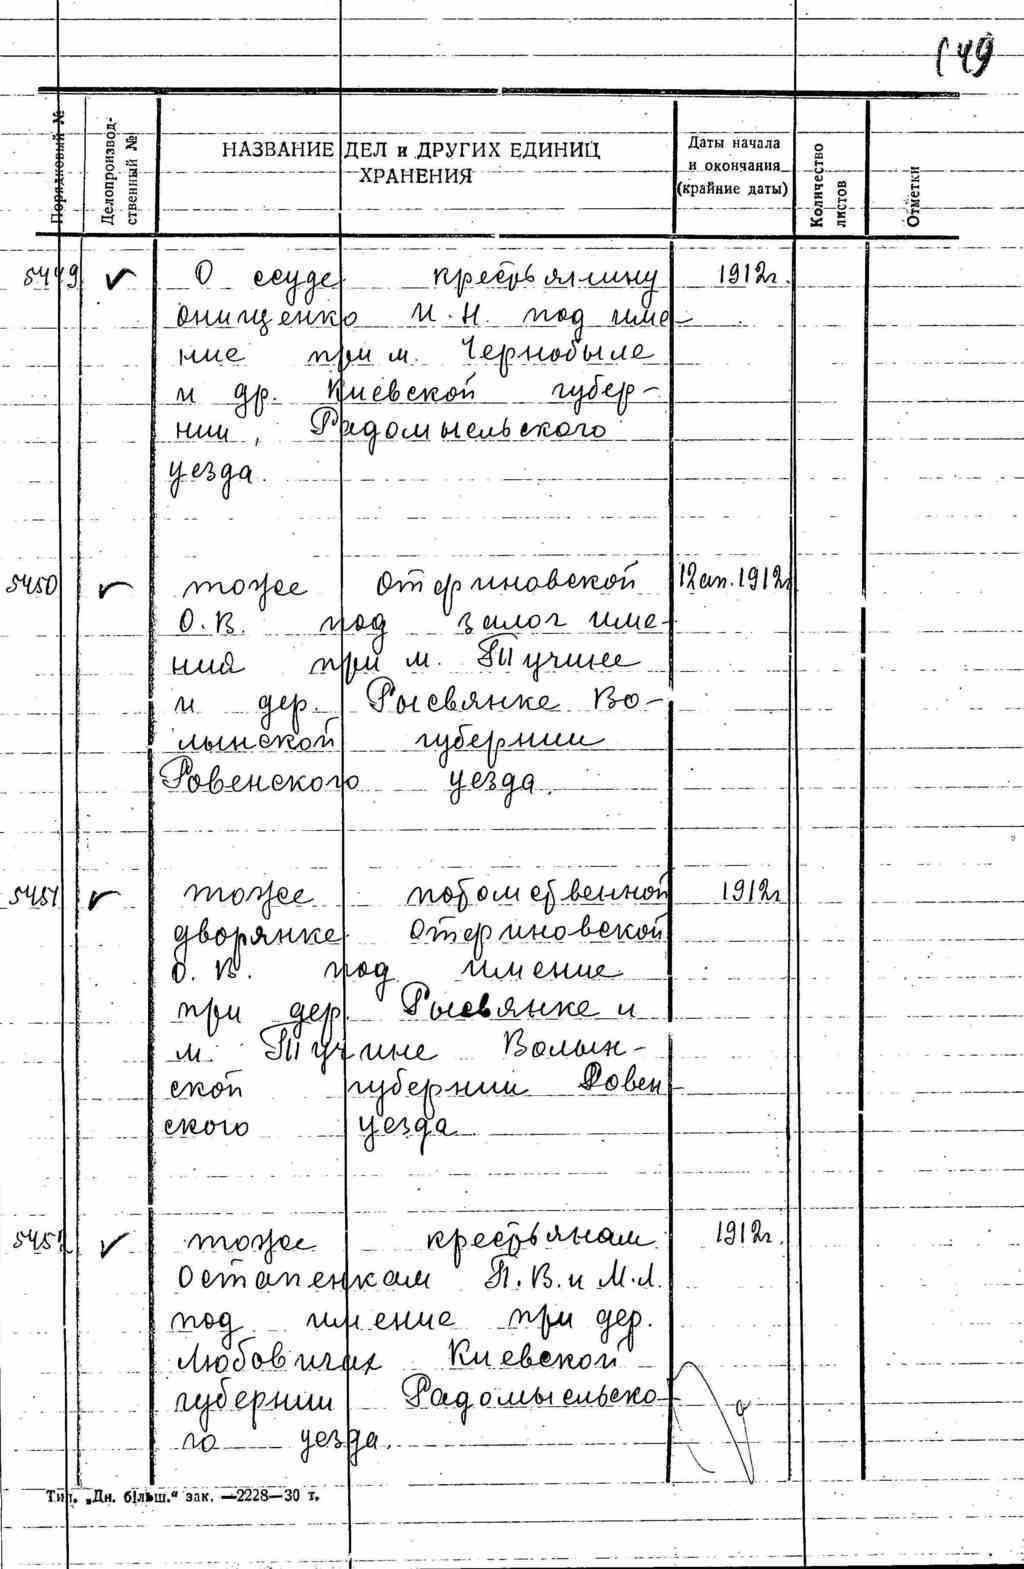 149
Порядковый №
Делопроизвод-
ственный №
НАЗВАНИЕ ДЕЛ и ДРУГИХ ЕДИНИЦ
ХРАНЕНИЯ
Даты начала
и окончания
(крайние даты)
Количество
листов
Отметки
5449 О ссуде крестьянину 1912г.
Онищенко И.Н. под име-
ние при м. Чернобыле
и др. Киевской губер-
нии, Радомысльского
уезда.
5450 тоже Отфиновской 12 ап. 1912г
О.В. под залог име-
ния при м. Тучине
и дер. Рысвянке Во-
лынской губернии
Ровенского уезда.
5451 тоже потомственной 1912г
дворянке Отфиновской
О.В. под имение
при дер. Рысвянке и
м. Тучине Волын-
ской губернии Ровен-
ского уезда
5452 тоже крестьянам 1912г.
Остапенкам П.В. и М.Л.
под имение при дер.
Любовичах Киевской
губернии Радомысльско-
го уезда.
Тип. „Дн. більш.“ зак. —2228—30 т.